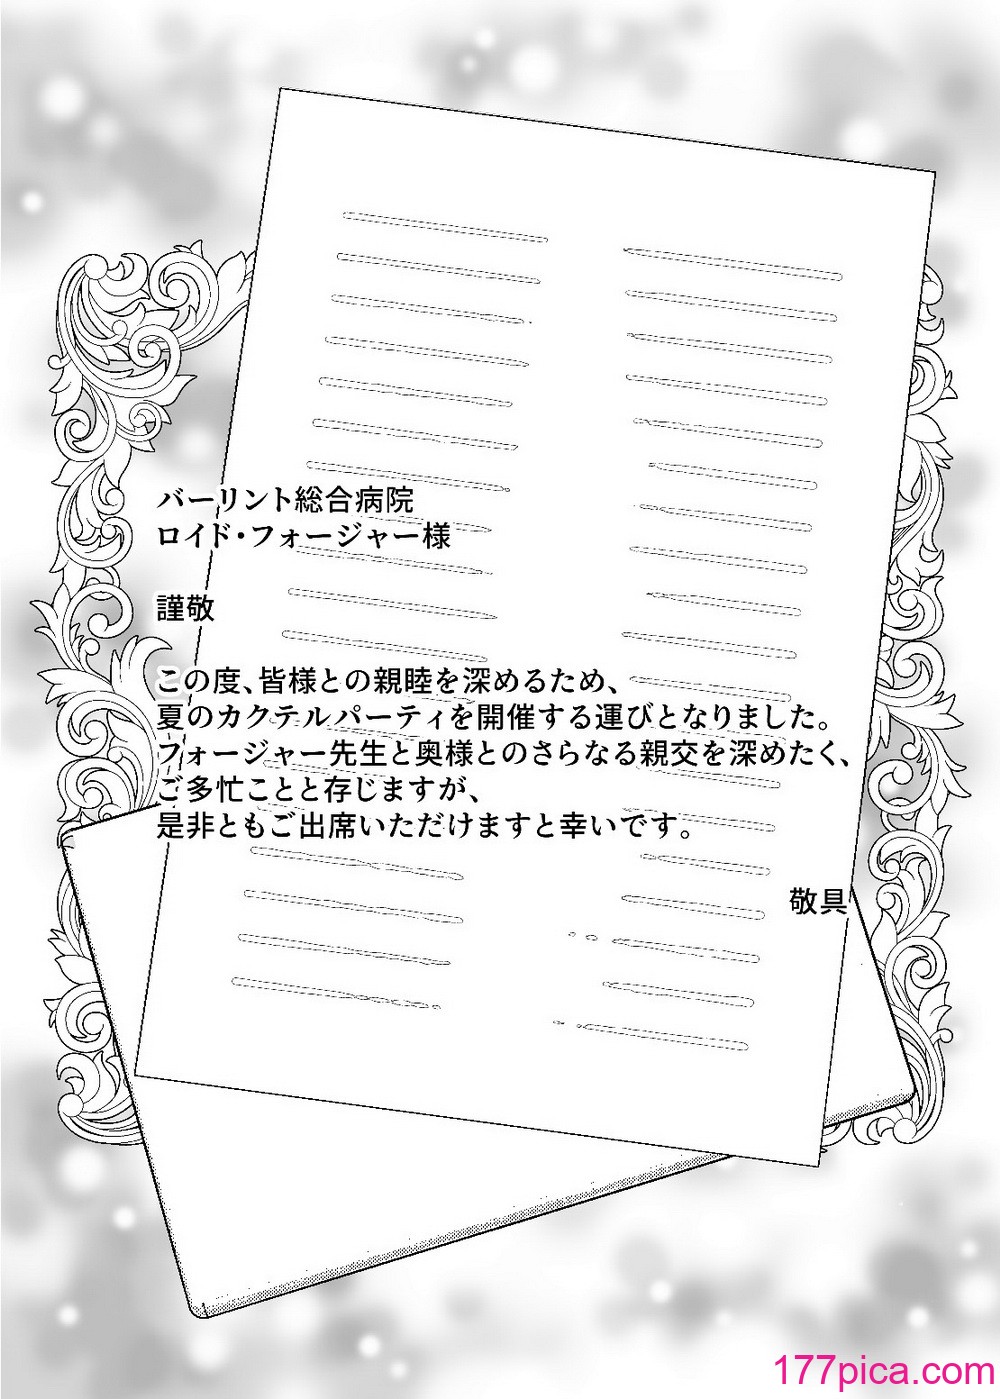 バーリント総合病院
ロイド・フォージャー様
謹敬
この度、皆様との親睦を深めるため、
夏のカクテルパーティを開催する運びとなりました。
フォージャー先生と奥様とのさらなる親交を深めたく、
ご多忙ことと存じますが、
是非ともご出席いただけますと幸いです。
敬具
177pica.com